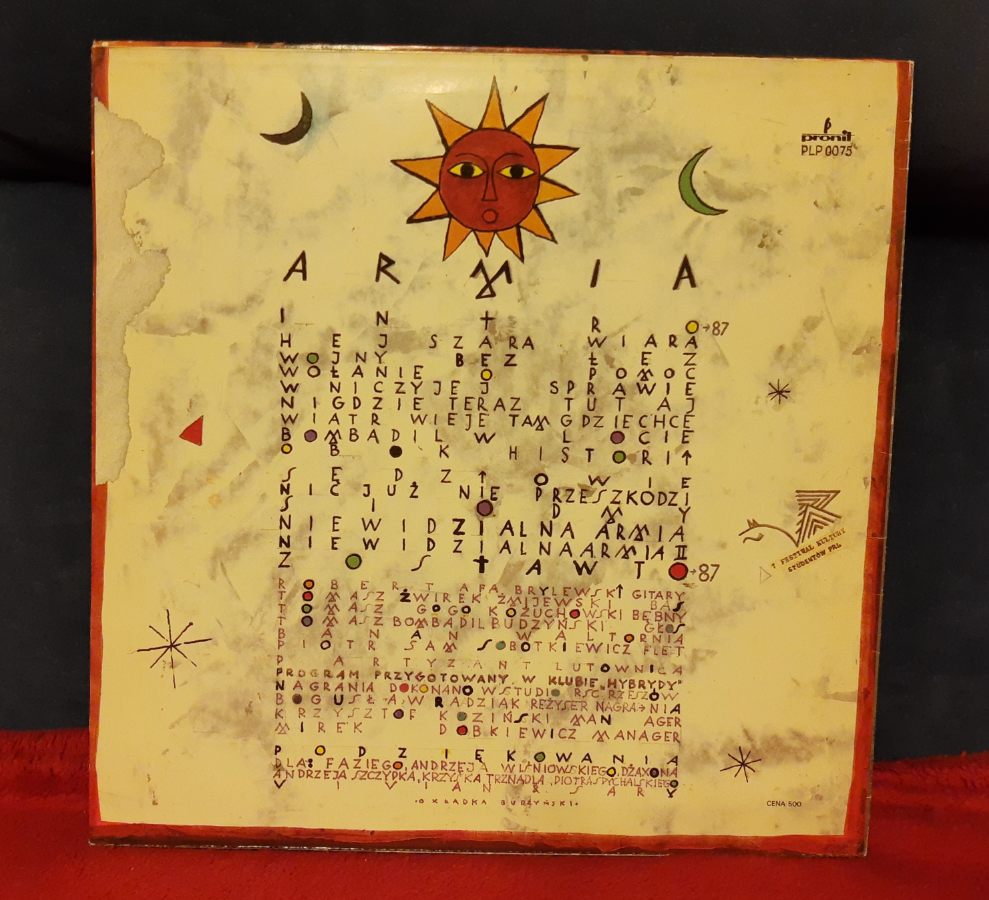 pronit
PLP 0075
ARMIA
INTRO →87
HEJ SZARA WIARA
WOJNY BEZ ŁEZ
WOŁANIE O POMOC
W NICZYJEJ SPRAWIE
NIGDZIE TERAZ TUTAJ
WIATR WIEJE TAM GDZIE CHCE
BOMBADIL W LOCIE
OBOK HISTORII
SĘDZIOWIE
NIC JUŻ NIE PRZESZKODZI
SIODMY
NIEWIDZIALNA ARMIA
NIEWIDZIALNA ARMIA II
ZOSTAW TO →87
7 FESTIWAL KULTURY
STUDENTÓW PRL
ROBERT AFA BRYLEWSKI GITARY
TOMASZ ŻWIREK ŻMIJEWSKI BAS
TOMASZ GOGO KOŻUCHOWSKI BĘBNY
TOMASZ BOMBADIL BUDZYŃSKI GŁOS
BANAN WALTORNIA
PIOTR SAM SOBOTKIEWICZ FLET
PARTYZANT LUTOWNICA
PROGRAM PRZYGOTOWANY W KLUBIE „HYBRYDY"
NAGRANIA DOKONANO W STUDIO RSC RZESZÓW
BOGUSŁAW RADZIAK REŻYSER NAGRANIA
KRZYSZTOF KOZIŃSKI MANAGER
MIREK DOBKIEWICZ MANAGER
PODZIĘKOWANIA
DLA: FAZIEGO, ANDRZEJA WIŚNIOWSKIEGO, DŻAXONA
ANDRZEJA SZCZYPKA, KRZYŚKA TRZNADLA, PIOTRA SPYCHALSKIEGO
VIVIAN & SARY
·OKŁADKA BUDZYŃSKI·
CENA 500